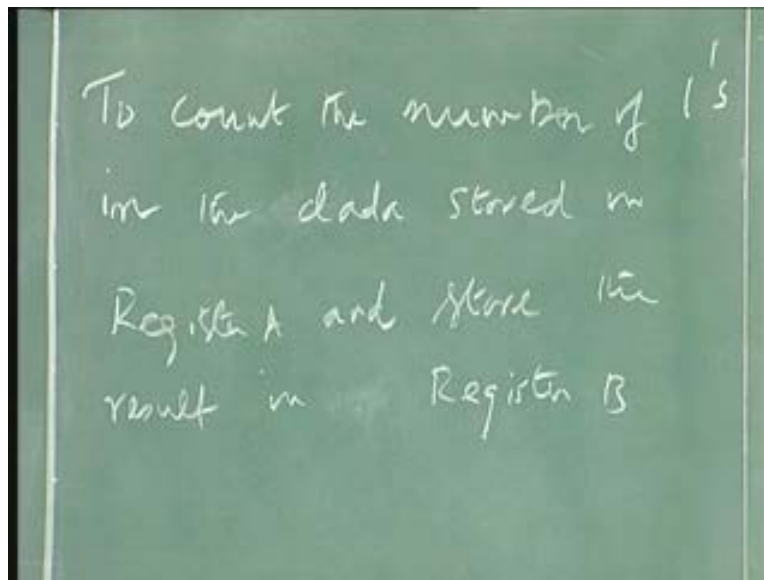 To count the number of 1's
in the dada stored in
Register A and store the
result in Register B